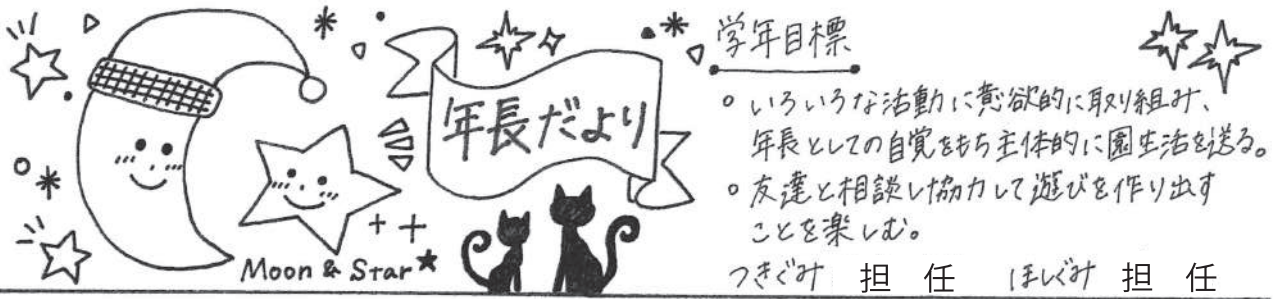 年長だより
Moon & Star
学年目標
。いろいろな活動に意欲的に取り組み、
年長としての自覚をもち主体的に園生活を送る。
。友達と相談し協力して遊びを作り出す
ことを楽しむ。
つきぐみ 担 任 ほしぐみ 担 任